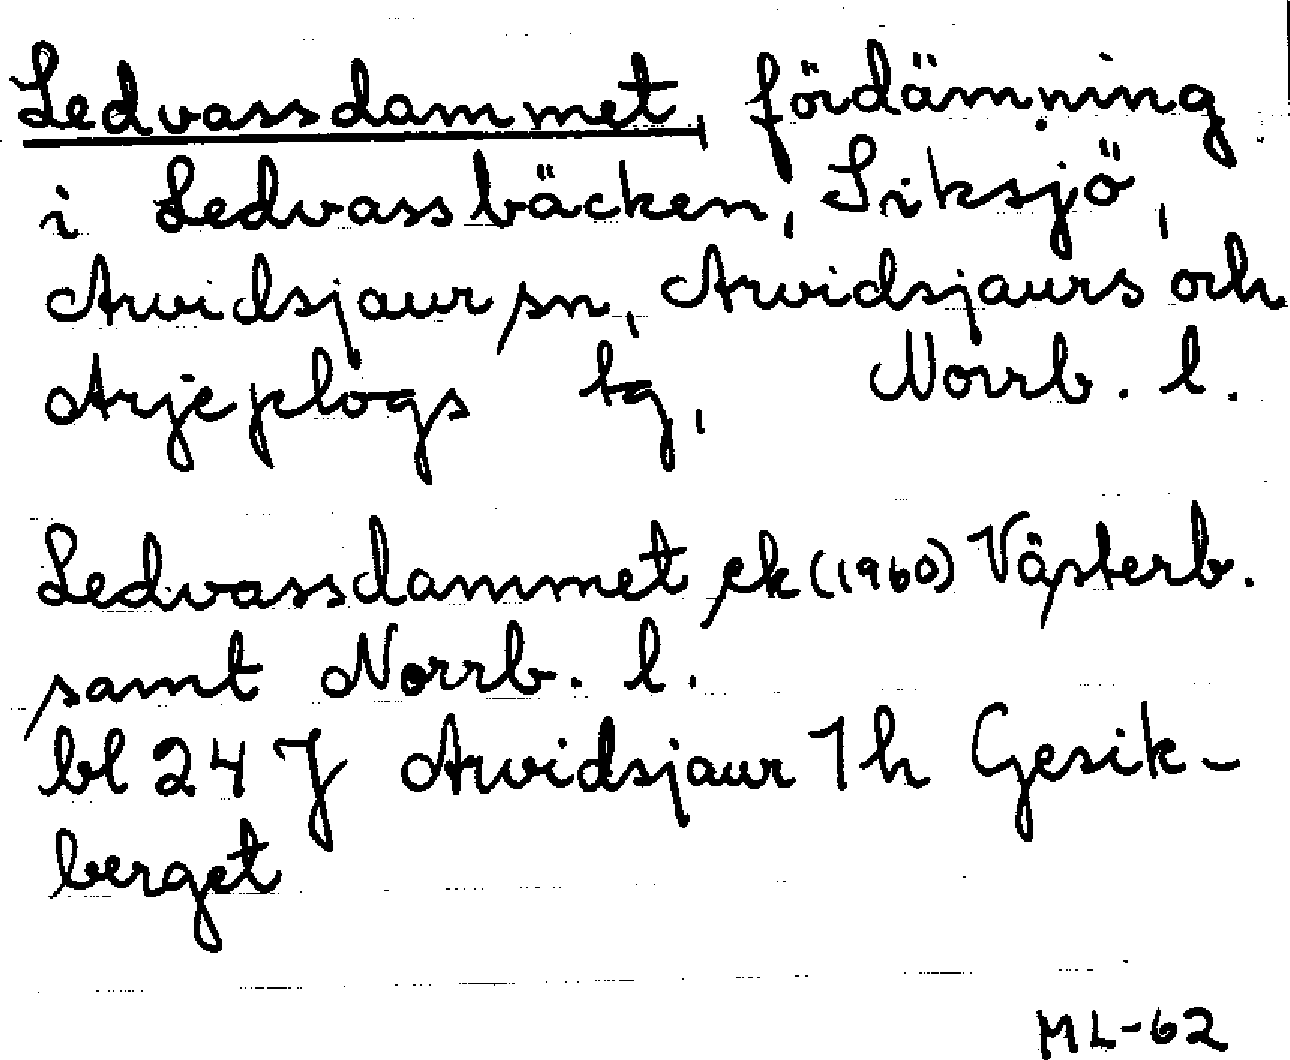 Ledvassdammet, fördämning
i Ledvassbäcken, Siksjö,
Arvidsjaur sn, Arvidsjaurs och
Arjeplogs tg, Norrb. l.
Ledvassdammet, ek (1960) Västerb.
samt Norrb. l.
bl 24 J Arvidsjaur 1h Gesik-
berget
ML-62